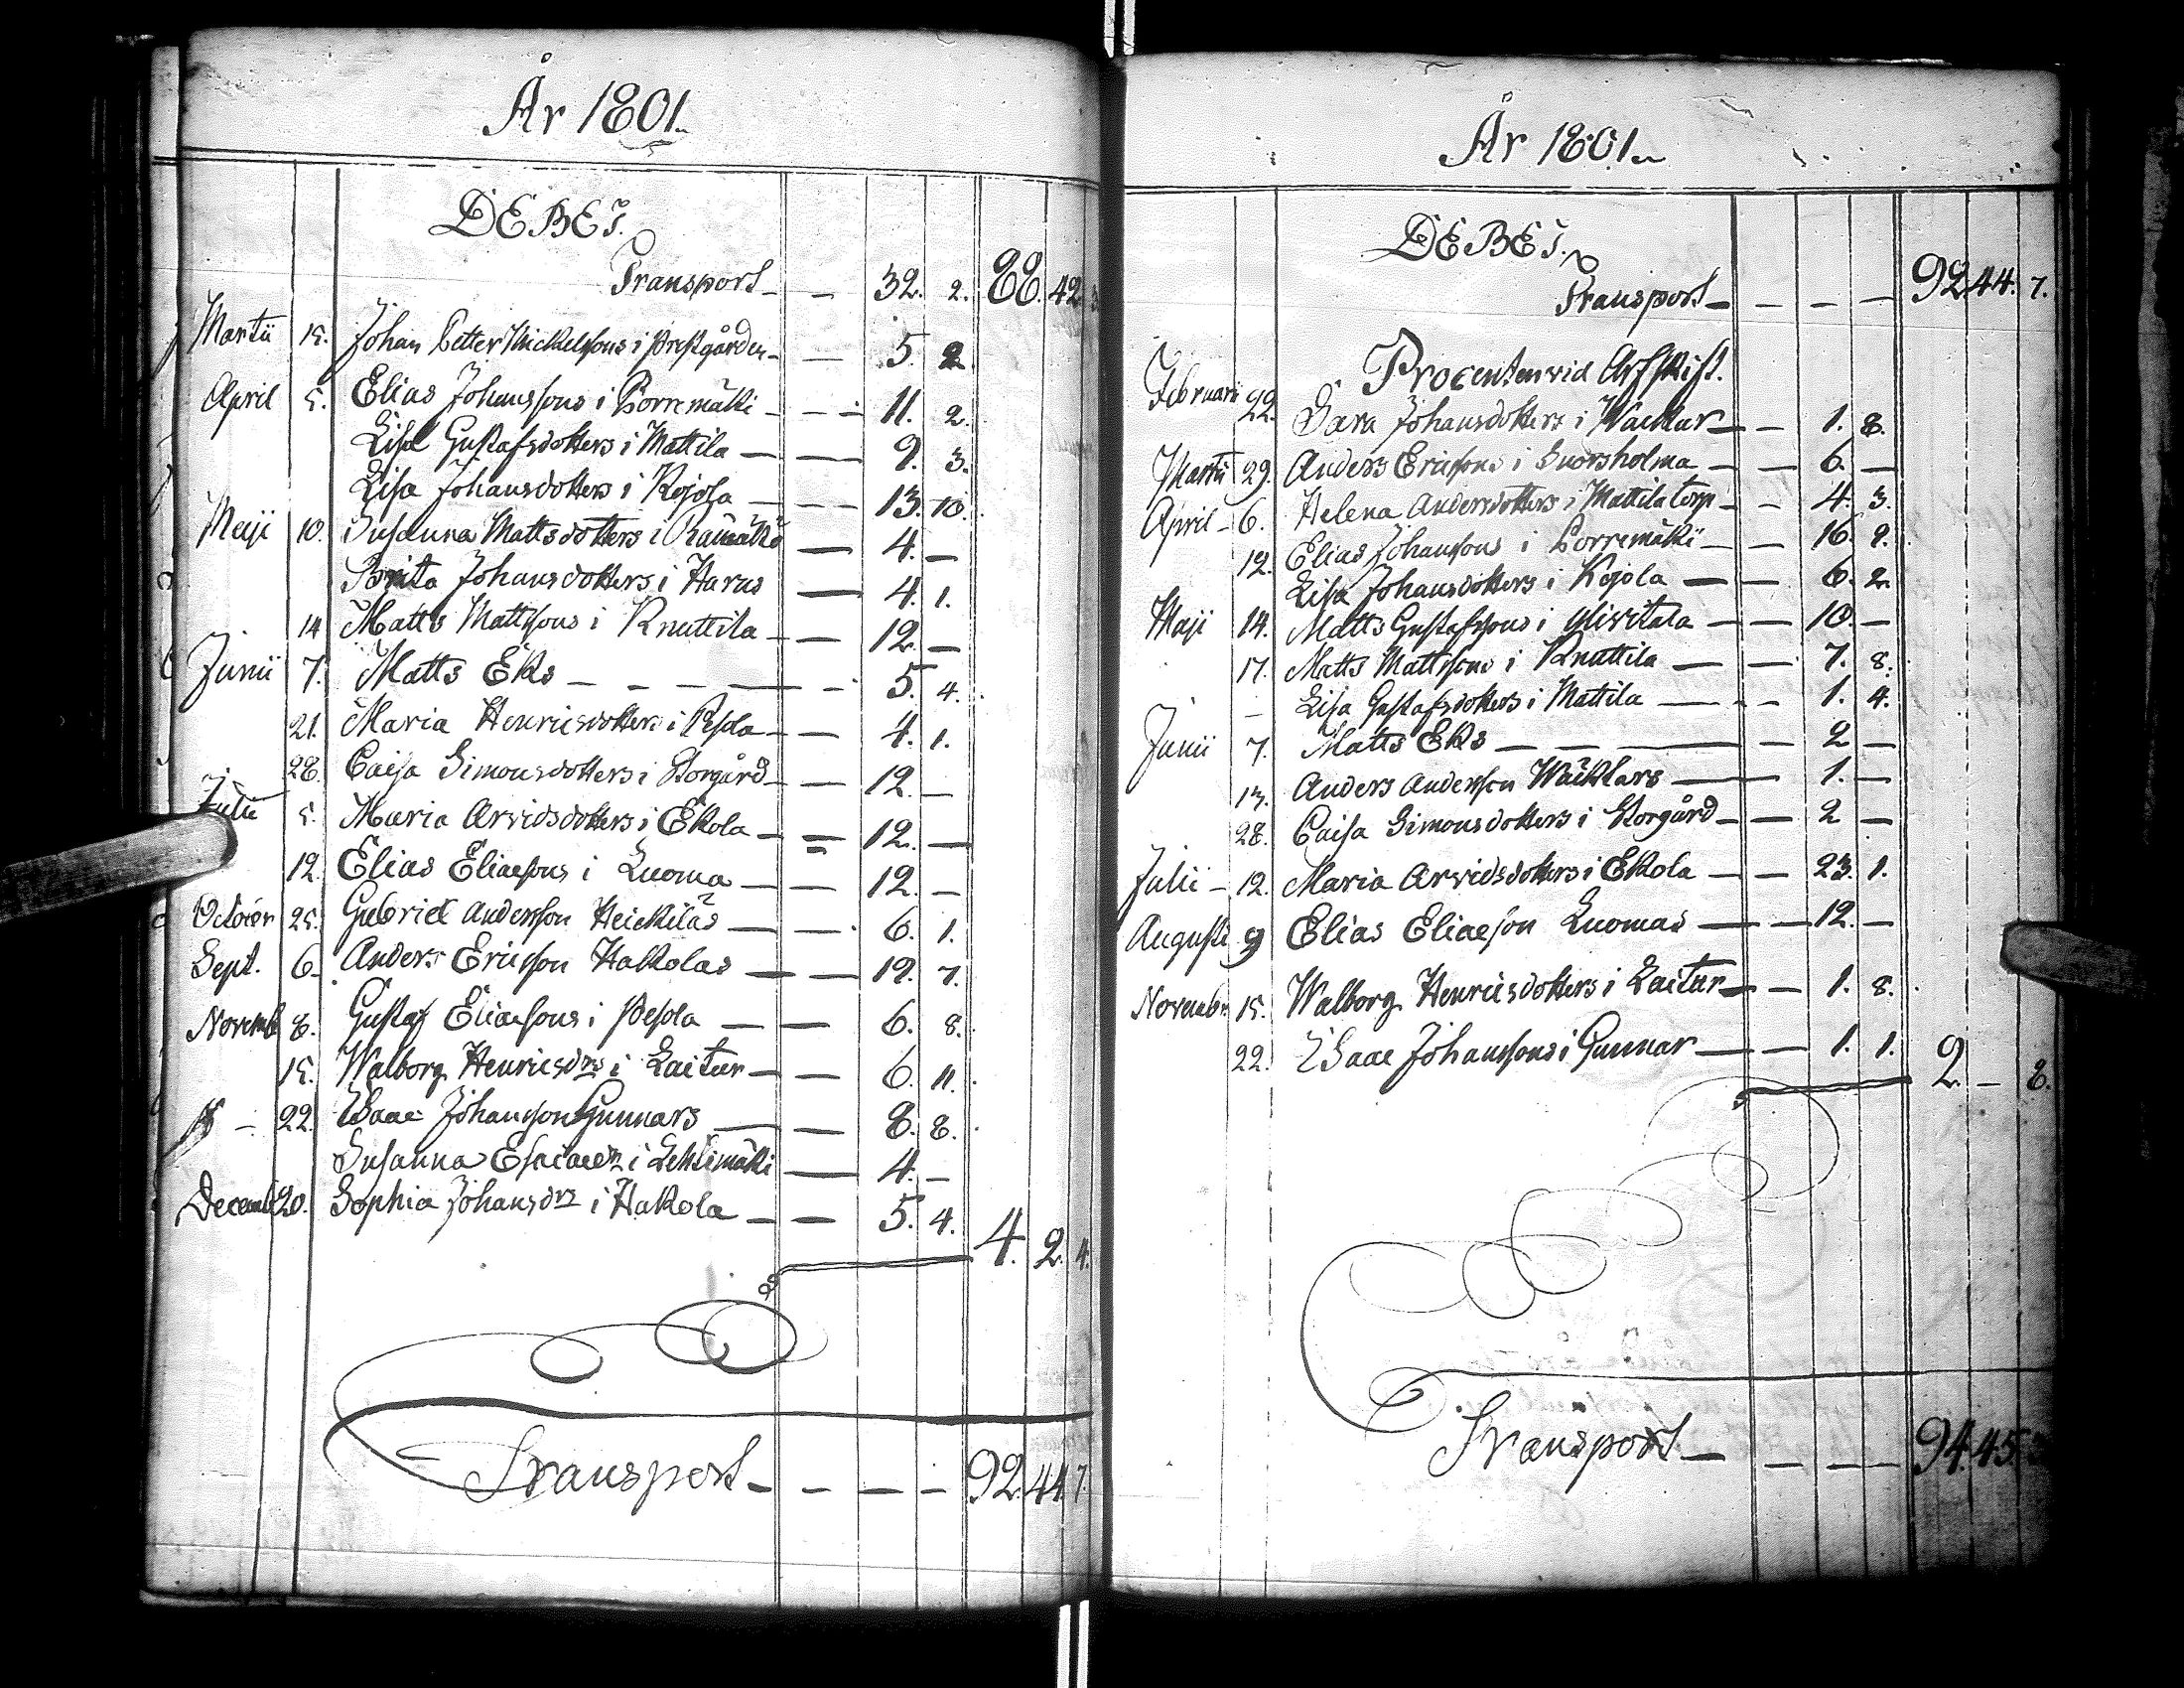 År 1801.
DEBET.
Transport - - 32. 2. 88. 42.
Martii 15. Johan Petter Mickelssons i Prestgården - - 5. 2.
April 5. Elias Johanssons i Porremäki - - 11. 2.
Lisa Gustafsdotters i Mattila - - 9. 3.
Lisa Johansdotters i Kojola - - 13. 10.
Maji 10. Susanna Mattsdotters i - 4. -
Brita Johansdotters i Harus - 4. 1.
14 Matts Mattssons i Knuttila - - 12. -
Junii 7. Matts Eks - - - - - 5. 4.
21. Maria Henricsdotters i Pesola - - 4. 1.
28. Caisa Simonsdotters i Storgård - - 12. -
Julii 5. Maria Arvidsdotters i Ekola - - 12. -
12. Elias Eliaesons i Luoma - - 12. -
October 25. Gabriel Andersson Heickilas - - 6. 1.
Sept. 6. Anders Ericsson Hakolas - - 12. 7.
Novemb 8. Gustaf Eliaesons i Pesola - - 6. 8.
15. Walborg Henricsdrs i Laitur - - 6. 11.
- 22. Isaac Johansson Gunnars - - 8. 8.
Susanna Esaiaedr i Lehtimäki - 4. -
Decemb 20. Sophia Johansdr i Hakola - - 5. 4.
4. 2. 4.
Transport - - - - 92. 44. 7.
År 1801.
DEBET.
Transport - - - - 92. 44. 7.
Procenten vid Arfskift.
Februari 22. Sara Johansdotters i Wackar - - 1. 8.
Martii 29. Anders Ericssons i Snorsholma - - 6. -
April - 6. Helena Andersdotters i Mattila torp - - 4. 3.
12. Elias Johanssons i Porremäki - - 16. 9.
Lisa Johansdotters i Kojola - - 6. 2.
Maji 14. Matts Gustafssons i Ylivitala - - 10. -
17. Matts Mattssons i Knuttila - - 7. 8.
- Lisa Gustafsdotters i Mattila - - - 1. 4.
Junii 7. Matts Eks - - - - 2 -
13. Anders Andersson Wäcktars - - 1. -
28. Caisa Simonsdotters i Storgård - - 2 -
Julii - 12. Maria Arvidsdotters i Ekola - - 23. 1.
Augusti 9 Elias Eliaeson Luomas - - 12. -
Novembr 15. Walborg Henricsdotters i Laitur - - 1. 8.
22. Isaac Johanssons i Gunnar - - 1. 1.
2. - 8.
Transport - - - - 94. 45. 3